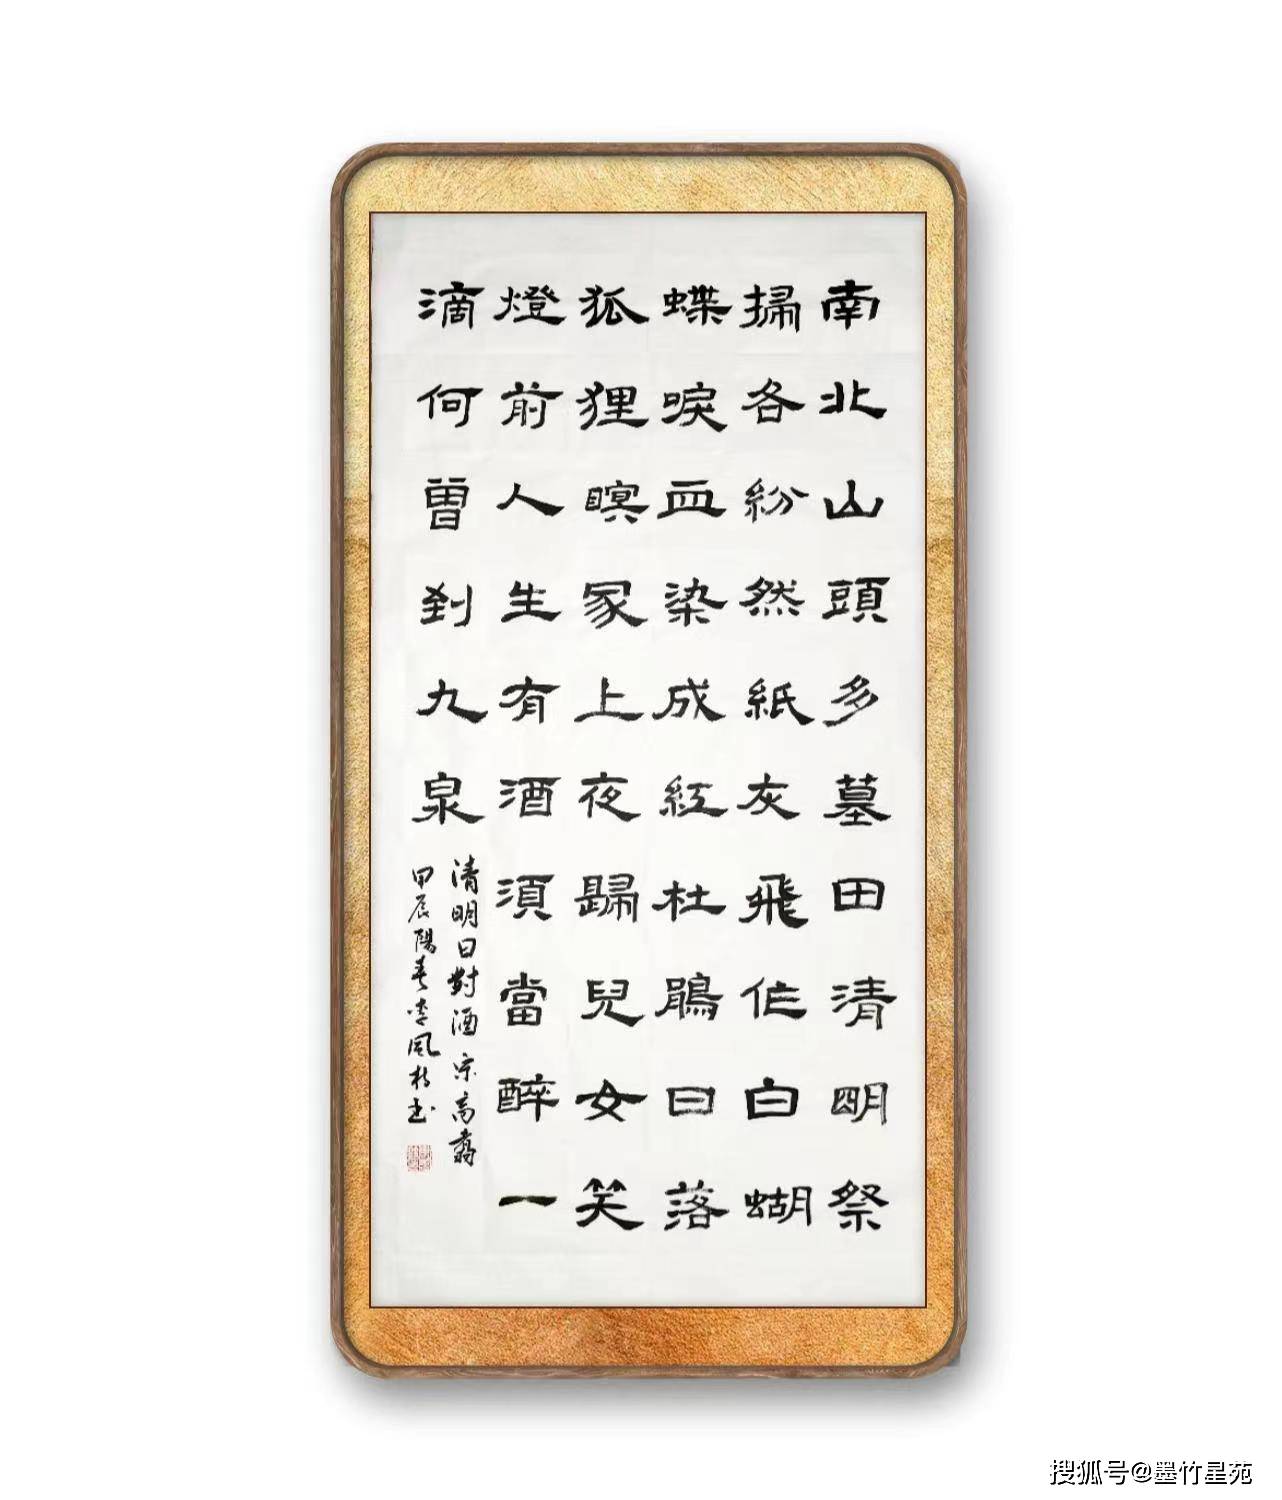 南北山頭多墓田清明祭
掃各紛然紙灰飛作白蝴
蝶唳血染成紅杜鵑日落
狐狸瞑冢上夜歸兒女笑
燈前人生有酒須當醉一
滴何曾到九泉
清明日對酒 宋高翥
甲辰陽春李風書
搜狐号@墨竹星苑